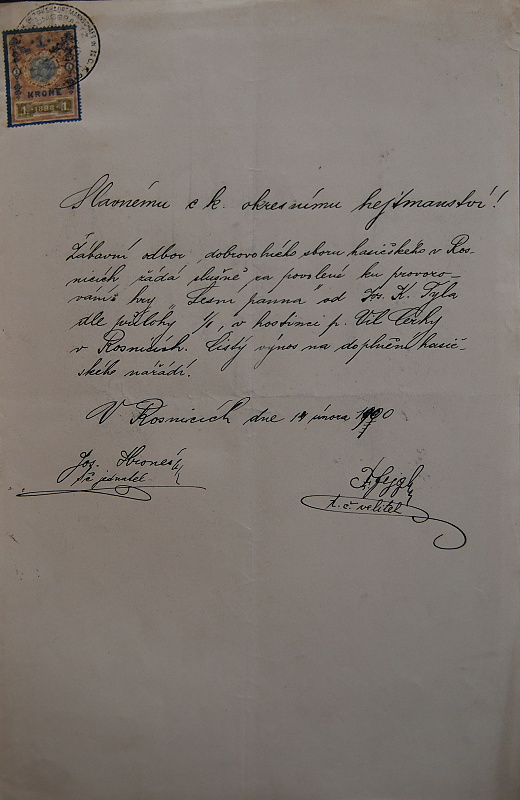 1
KRONE
1 1898 1
Slavnému c k. okresnímu hejtmanství!
Zábavní odbor dobrovolného sboru hasičského v Ros-
nicích, žádá slušně za povolení ku provozo-
vání hry „Lesní panna“ od Jos. K. Tyla
dle přílohy 1/1, v hostinci p. Vil. Čerky
v Rosnicích. Čistý výnos na doplnění hasič-
ského nářadí.
V Rosnicích dne 14 února 1900
Jos. Hroneš
t. č. velitel